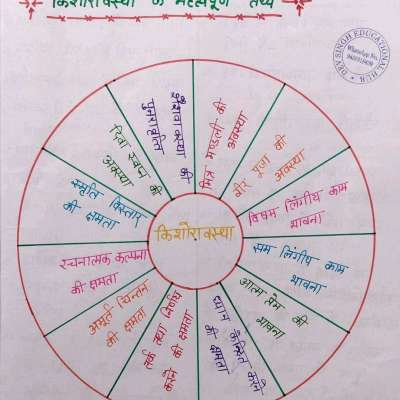 किशोरावस्था के महत्वपूर्ण तथ्य
DEV SINGH EDUCATIONAL HUB
WhatsApp No.
किशोरावस्था
मित्र मण्डली की
अवस्था
वीर पूजा की
अवस्था
विषम लिंगीय काम
भावना
सम लिंगीय काम
भावना
आत्म प्रेम की
भावना
ध्यान केन्द्रित करने
की क्षमता
तर्क तथा निर्णय
करने की क्षमता
अमूर्त चिन्तन
की क्षमता
रचनात्मक कल्पना
की क्षमता
स्मृति विस्तार
की क्षमता
दिवा स्वप्न की
अवस्था
शैशवावस्था की
पुनरावृत्ति